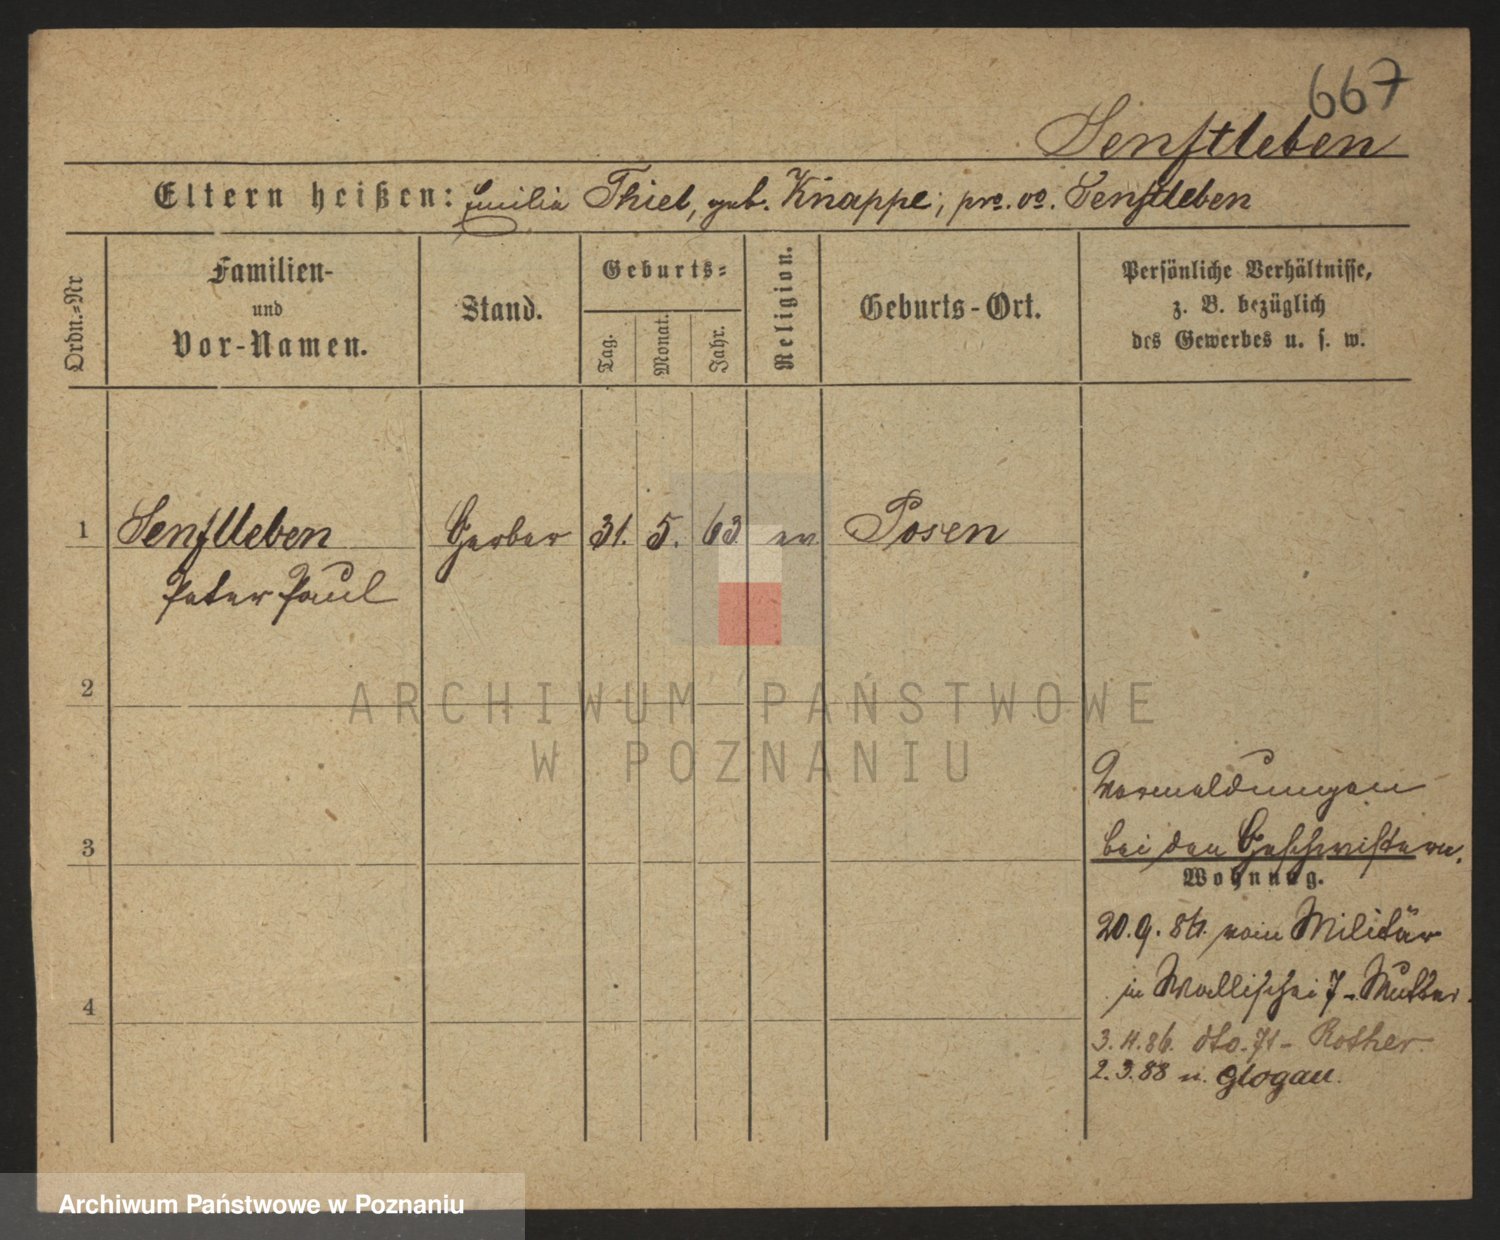 667
Senftleben
Eltern heißen: Emilia Thiel, geb. Knappe, pro. vo. Senftleben
Ordn.=Nr
Familien-
und
Vor-Namen.
Stand.
Geburts=
Tag.
Monat.
Jahr.
Religion.
Geburts-Ort.
Persönliche Verhältnisse,
z. B. bezüglich
des Gewerbes u. s. w.
1 Senftleben Gerber 31. 5. 63 ev Posen
Peter Paul
2
ARCHIWUM PAŃSTWOWE
W POZNANIU
Vormeldungen
3 bei den Geschwistern.
Wohnung.
20. 9. 86. vom Militär
in Wallischei 7 - Mutter.
4
3. 11. 86. dto. 71 - Rother
2. 3. 88 n. Glogau.
Archiwum Państwowe w Poznaniu